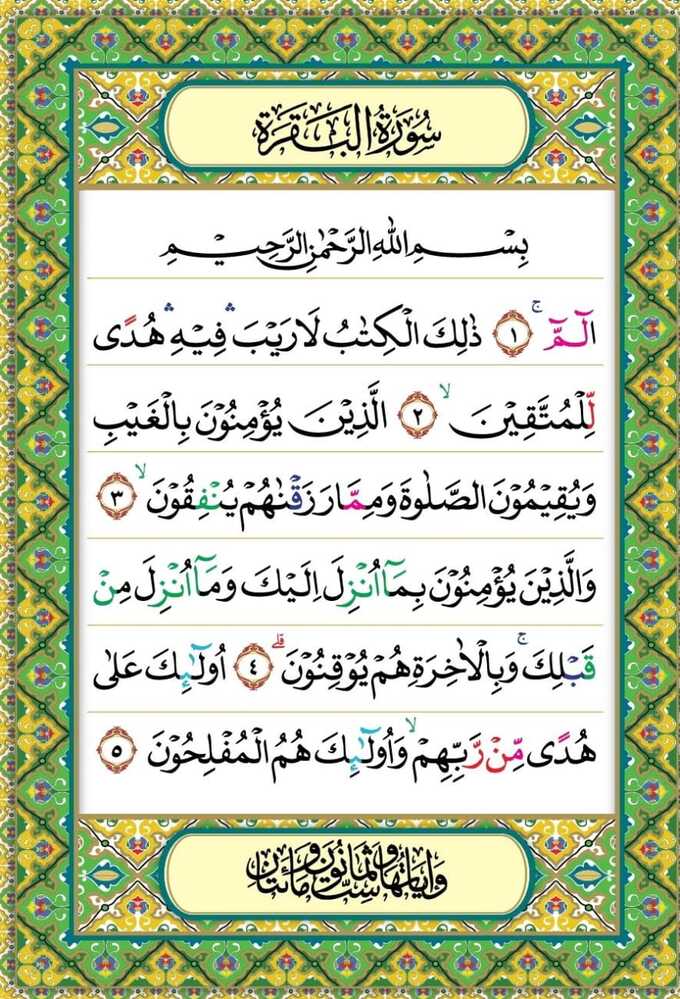 سُوْرَةُ الْبَقَرَةِ
بِسْمِ اللهِ الرَّحْمٰنِ الرَّحِيْمِ
الۤمّۤ ۚ ١ ذٰلِكَ الْكِتٰبُ لَا رَيْبَ ۛ فِيْهِ ۛ هُدًى
لِّلْمُتَّقِيْنَ ۙ ٢ الَّذِيْنَ يُؤْمِنُوْنَ بِالْغَيْبِ
وَيُقِيْمُوْنَ الصَّلٰوةَ وَمِمَّا رَزَقْنٰهُمْ يُنْفِقُوْنَ ۙ ٣
وَالَّذِيْنَ يُؤْمِنُوْنَ بِمَآ اُنْزِلَ اِلَيْكَ وَمَآ اُنْزِلَ مِنْ
قَبْلِكَ ۚ وَبِالْاٰخِرَةِ هُمْ يُوْقِنُوْنَ ۗ ٤ اُولٰۤىِٕكَ عَلٰى
هُدًى مِّنْ رَّبِّهِمْ ۙ وَاُولٰۤىِٕكَ هُمُ الْمُفْلِحُوْنَ ٥
وَاٰيَاتُهَا سِتٌّ وَثَمَانُوْنَ وَمِائَتَانِ